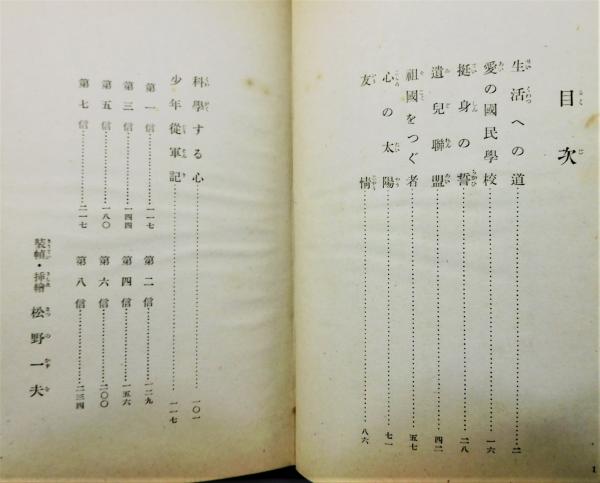 目次
生活への道……二
愛の國民學校……一六
挺身の誓……二八
遺兒聯盟……四二
祖國をつぐ者……五七
心の太陽……七一
友情……八六
1
科學する心……一〇一
少年從軍記……一一七
第一信……一一七
第二信……一二九
第三信……一四四
第四信……一五六
第五信……一八〇
第六信……二〇〇
第七信……二一七
第八信……二三四
裝幀・挿繪 松野一夫